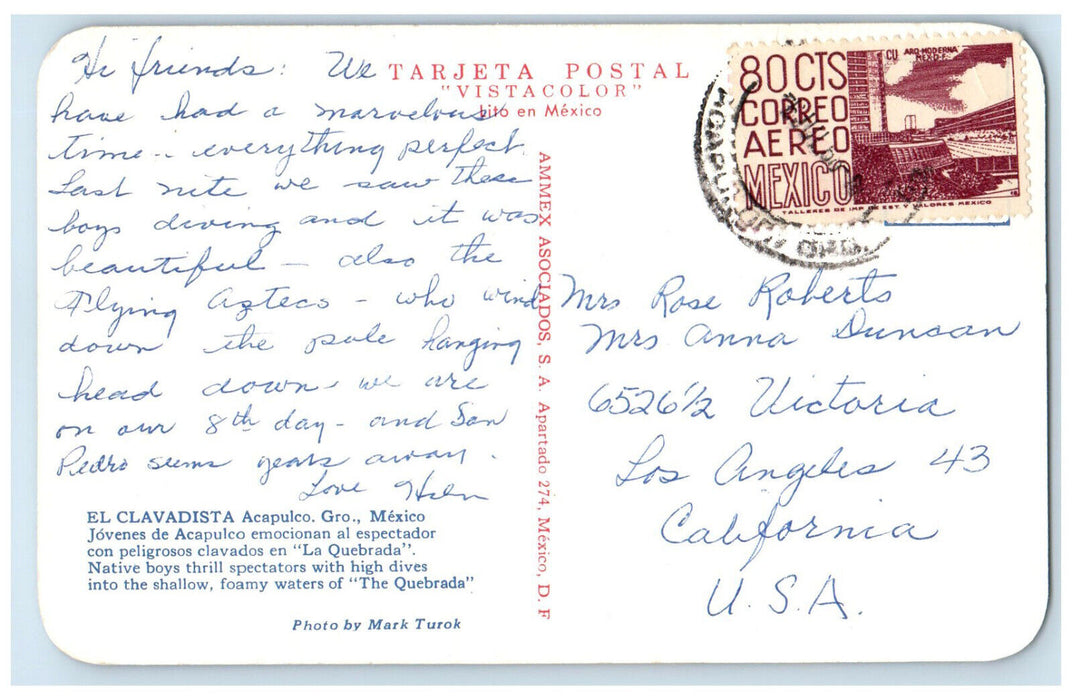 Hi friends: We
have had a marvelous
time - everything perfect.
Last nite we saw these
boys diving and it was
beautiful - also the
Flying Aztecs - who wind
down the pole hanging
head down - we are
on our 8th day - and San
Pedro seems years away.
Love Helen
EL CLAVADISTA Acapulco. Gro., México
Jóvenes de Acapulco emocionan al espectador
con peligrosos clavados en "La Quebrada".
Native boys thrill spectators with high dives
into the shallow, foamy waters of "The Quebrada"
Photo by Mark Turok
TARJETA POSTAL
"VISTACOLOR"
Litó en México
AMMEX ASOCIADOS, S. A. Apartado 274, México, D. F
80 CTS
CORREO
AEREO
MEXICO
CU ARQ-MODERNA
MEXICO D.F.
TALLERES DE IMP. DE EST. Y VALORES MEXICO
ACAPULCO
Mrs Rose Roberts
Mrs Anna Duncan
6526 1/2 Victoria
Los Angeles 43
California
U.S.A.